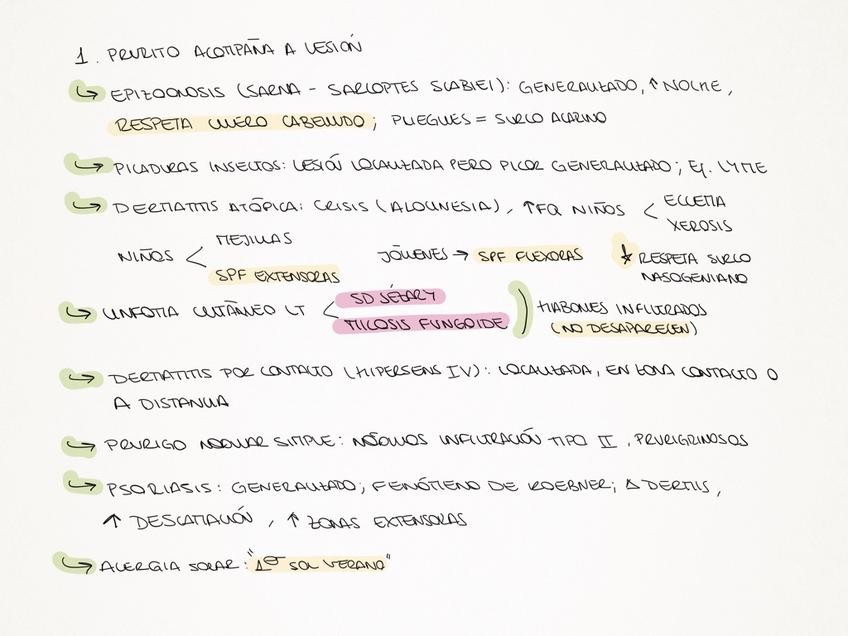 1. PRURITO ACOMPAÑA A LESIÓN
↳ EPIZOONOSIS (SARNA - SARCOPTES SCABIEI): GENERALIZADO, ↑ NOCHE,
RESPETA CUERO CABELLUDO; PLIEGUES = SURCO ACARINO
↳ PICADURAS INSECTOS: LESIÓN LOCALIZADA PERO PICOR GENERALIZADO; Ej. LYME
↳ DERMATITIS ATÓPICA: CRISIS (ALOQUNESIA), ↑FQ NIÑOS < ECCEMA
XEROSIS
NIÑOS < MEJILLAS
SPF EXTENSORAS
JÓVENES → SPF FLEXORAS
* RESPETA SURCO
NASOGENIANO
↳ LINFOMA CUTÁNEO LT < SD SÉZARY
MICOSIS FUNGOIDE
) HABONES INFILTRADOS
(NO DESAPARECEN)
↳ DERMATITIS POR CONTACTO (HIPERSENS IV): LOCALIZADA, EN ZONA CONTACTO O
A DISTANCIA
↳ PRURIGO NODULAR SIMPLE: NÓDULOS INFILTRACIÓN TIPO II, PRURIGINOSOS
↳ PSORIASIS: GENERALIZADO; FENÓMENO DE KOEBNER; Δ DERMIS,
↑ DESCAMACIÓN, ↑ ZONAS EXTENSORAS
↳ ALERGIA SOLAR: "1er SOL VERANO"